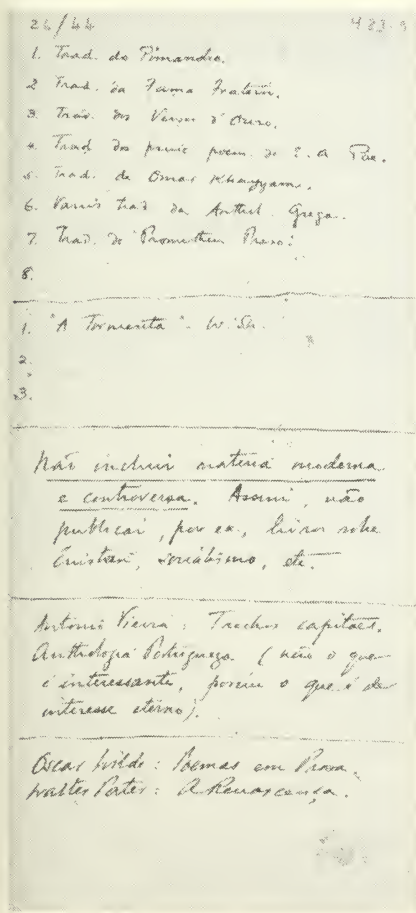 26/44
1. Trad. do Pimandro.
2 Trad. da Fama Fratern.
3. Trad. dos Versos d'Ouro.
4. Trad. dos princ. poem. de E. A Poe.
5. Trad. de Omar Khayyam.
6. Varias trad da Anthol. Grega.
7. Trad. do Prometheu Preso.
8.
1. "A Tormenta" - W. Sh.
2.
3.
Não incluir materia moderna
e controversa. Assim, não
publicar, por ex., livros sobre
socialismo, etc.
Antonio Vieira: Trechos capitaes.
Anthologia Portugueza. (não o que
é interessante, porém o que é de
interesse eterno).
Oscar Wilde: Poemas em Prosa.
Walter Pater: A Renascença.